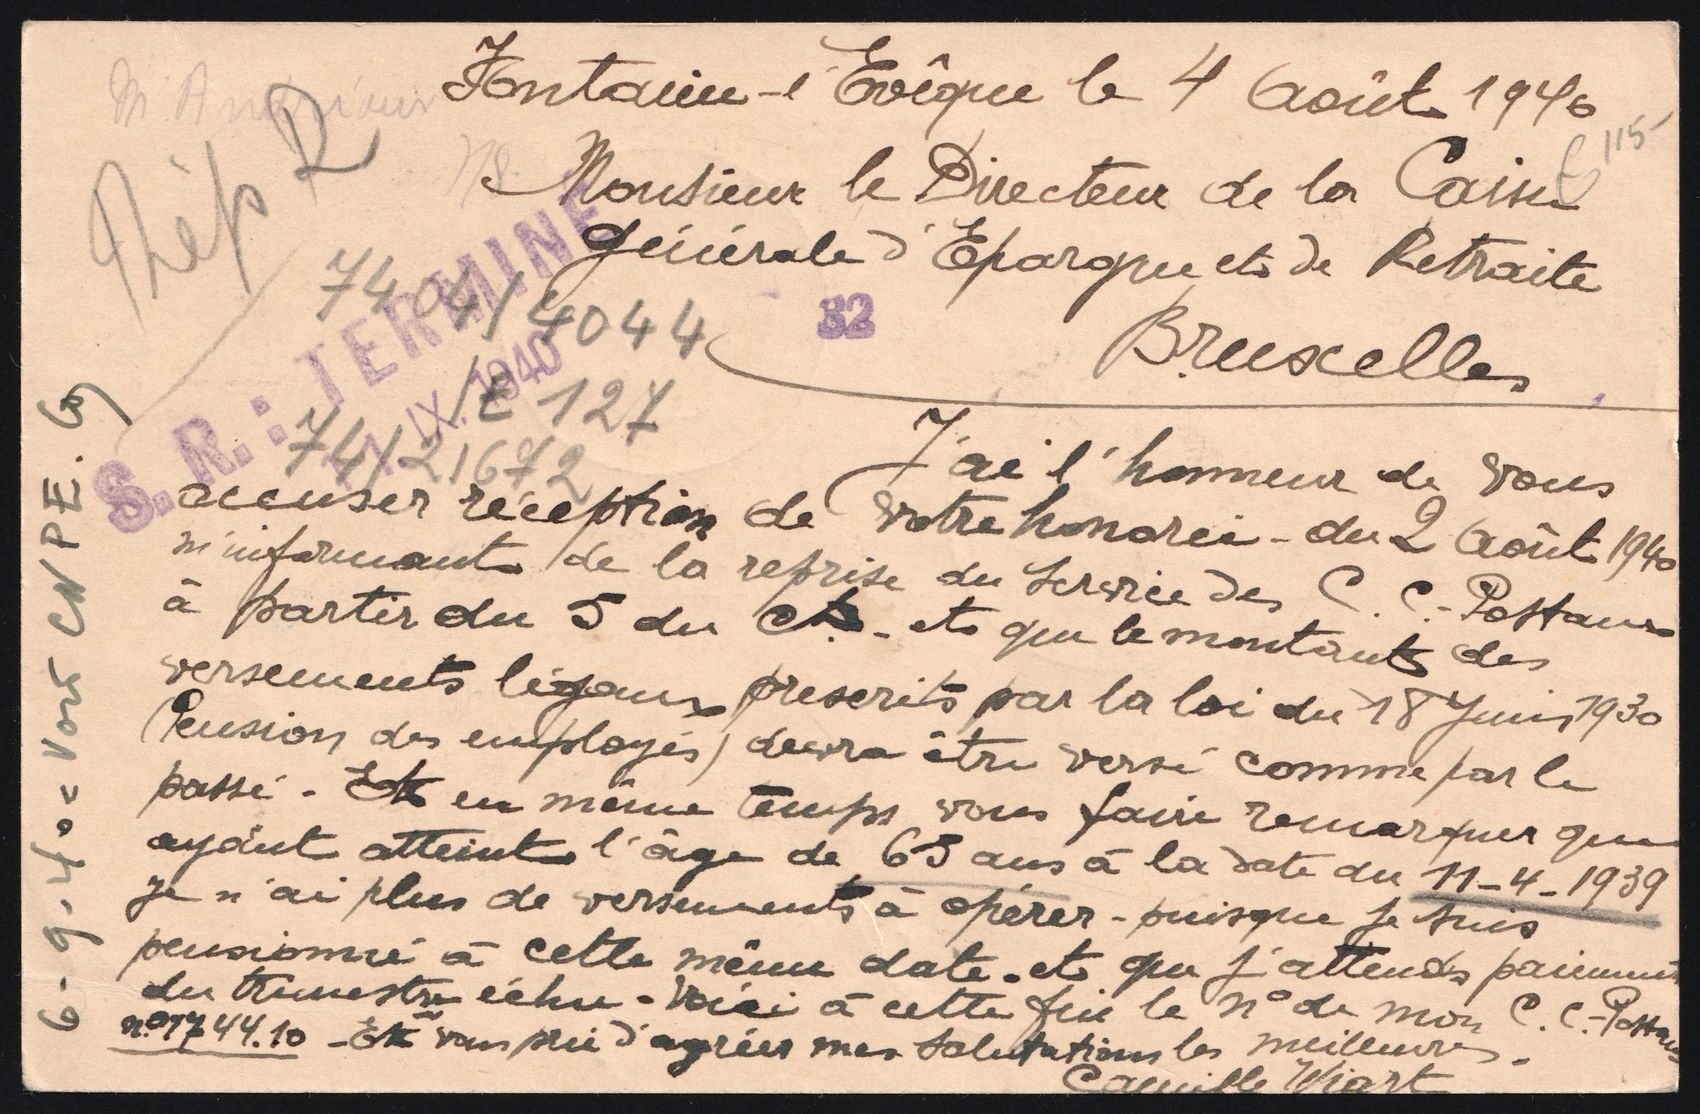 Fontaine-l'Evêque le 4 Août 1940
Monsieur le Directeur de la Caisse
générale d'Epargne et de Retraite
Bruxelles
Rép R
115
74 04/4044
/E 127
74/21672
S.R.: TERMINÉ
11. IX. 1940
32
J'ai l'honneur de vous
accuser réception de votre honorée - du 2 Août 1940
m'informant de la reprise du service des C. C.- Postaux
à partir du 5 du ct. - et que le montant des
versements légaux prescrits par la loi du 18 Juin 1930
(Pension des employés) devra être versé comme par le
passé - Et en même temps vous faire remarquer que
ayant atteint l'âge de 65 ans à la date du 11-4-1939
je n'ai plus de versements à opérer - puisque je suis
pensionné à cette même date - et que j'attends paiement
du trimestre échu - Voici à cette fin le n° de mon C. C.-Postaux
n° 1744.10 - Et vous prie d'agréer mes salutations les meilleures.
Camille Wiart
6-9-40 = Voir CNPE.